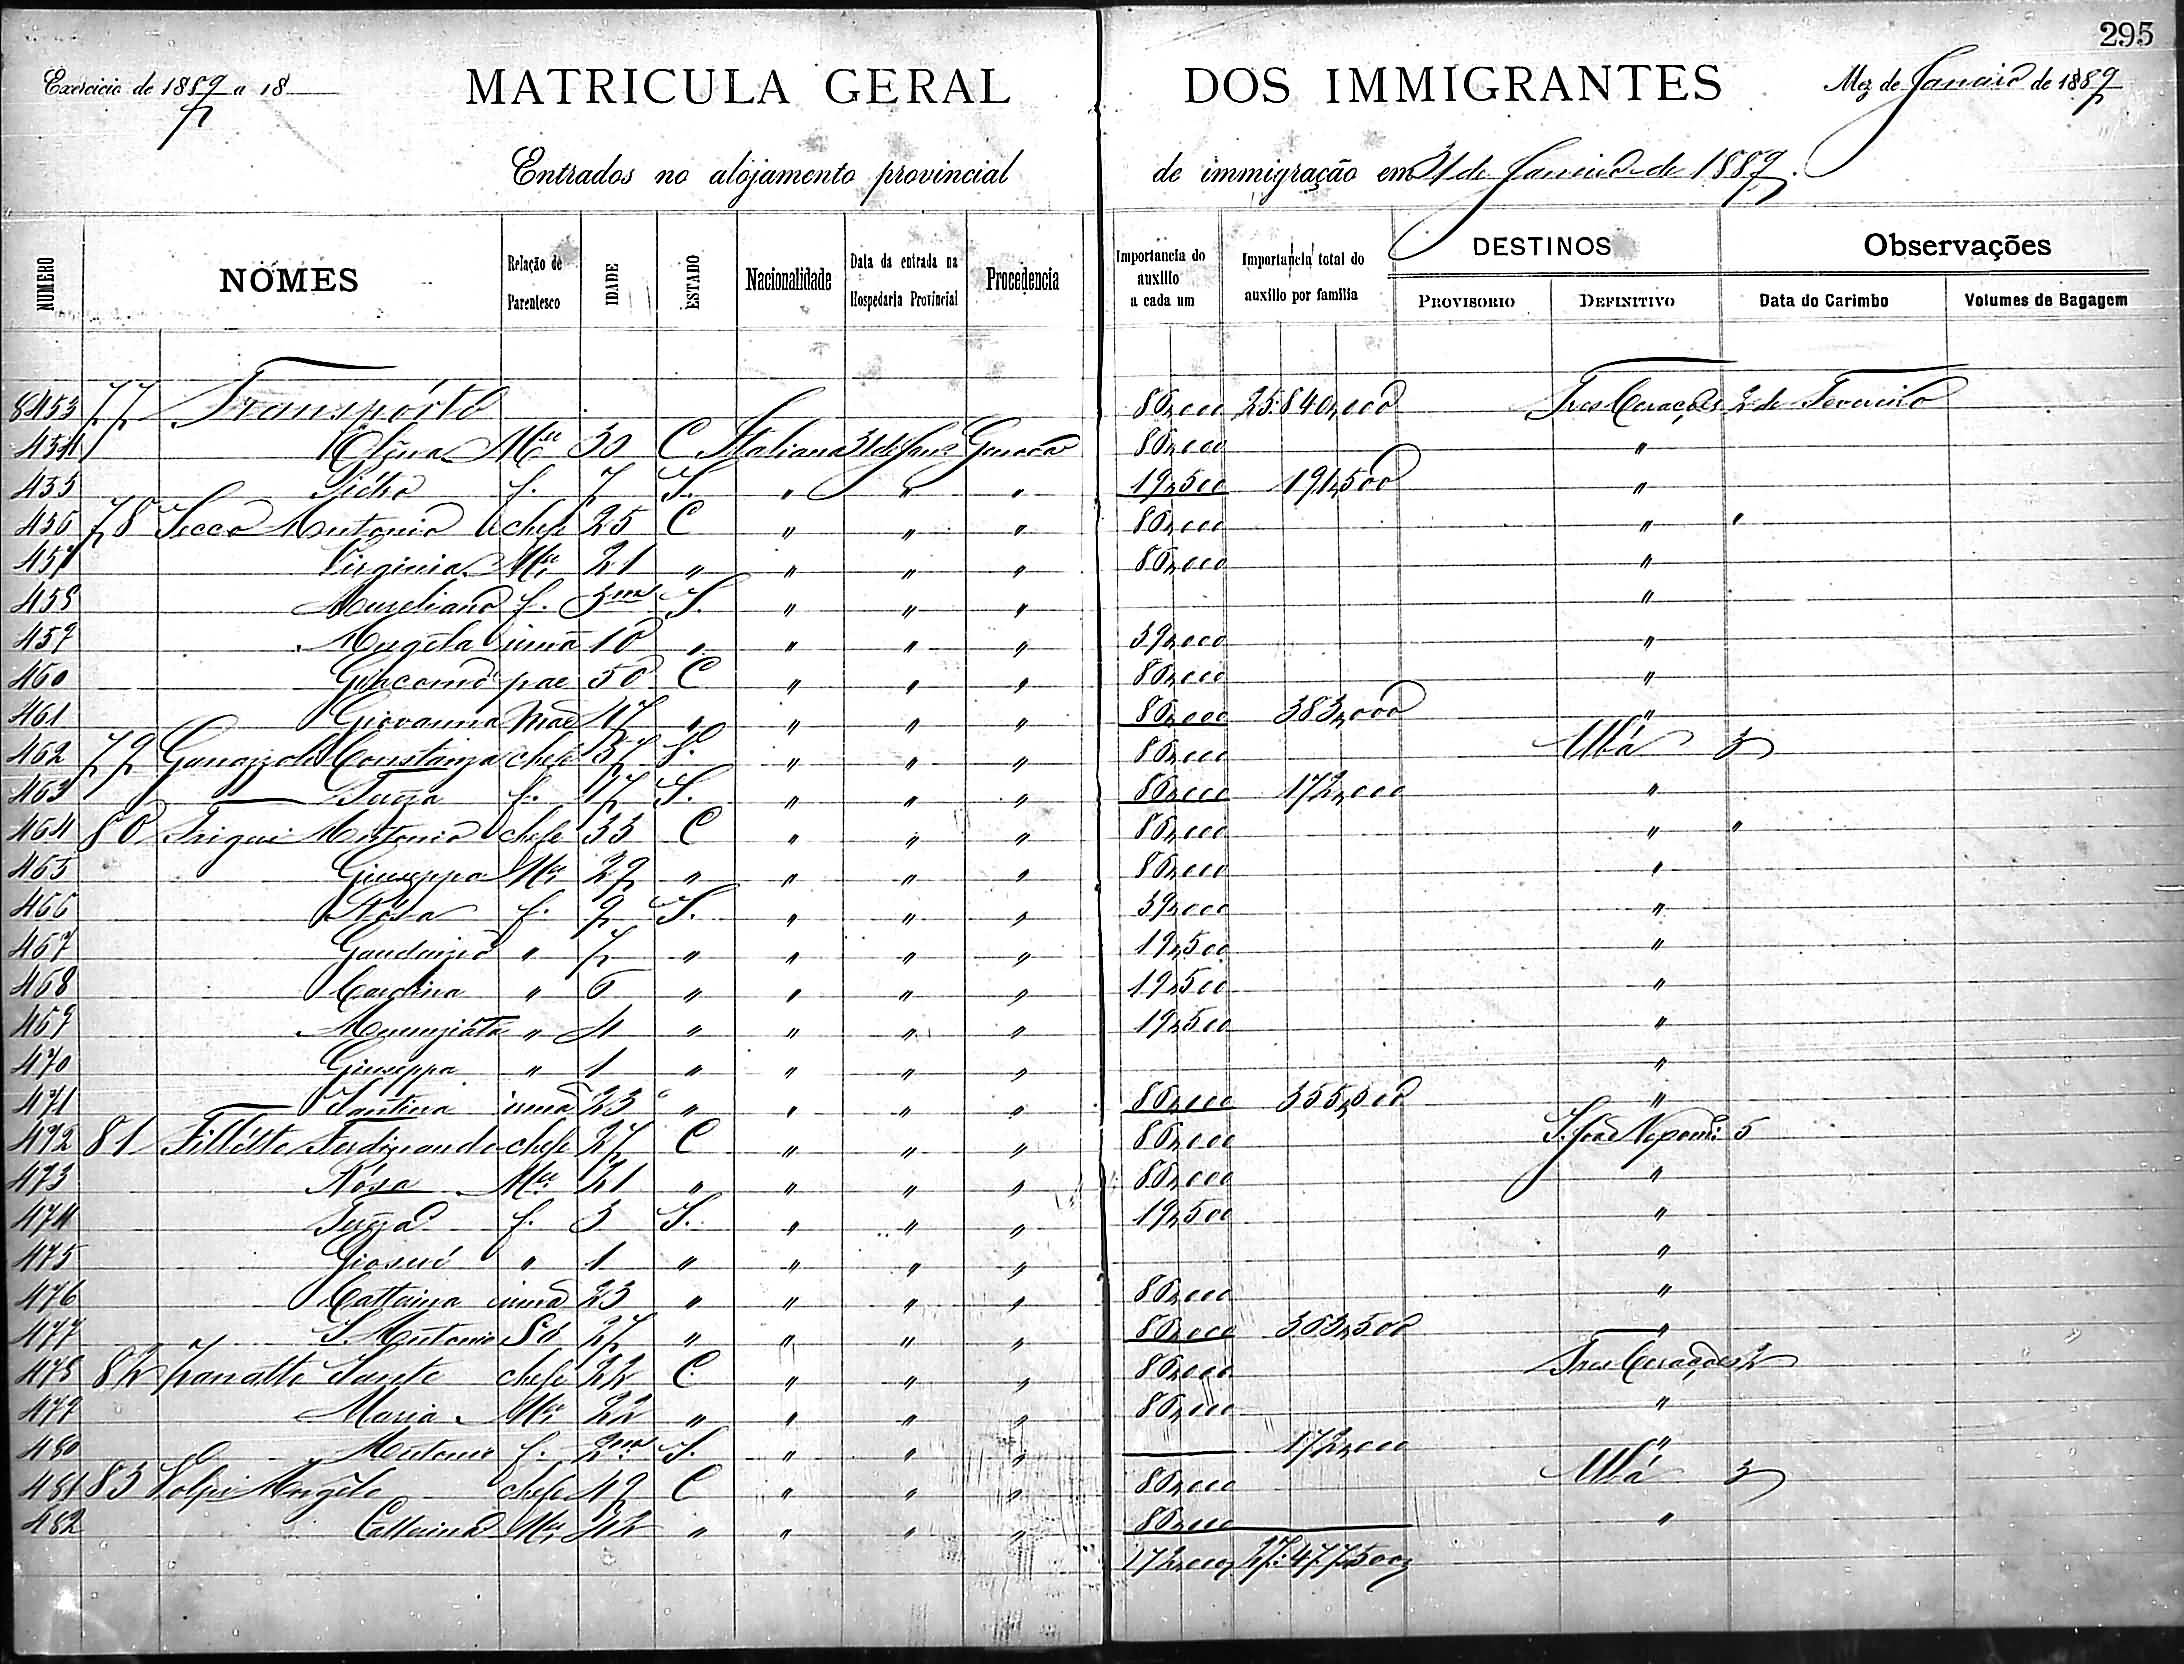 295
Exercicio de 1889 a 18
MATRICULA GERAL DOS IMMIGRANTES
Mez de Janeiro de 1889
Entrados no alojamento provincial de immigração em 31 de Janeiro de 1889
NUMERO NOMES Relação de Parentesco IDADE ESTADO Nacionalidade Data da entrada na Hospedaria Provincial Procedencia Importancia do auxilio a cada um Importancia total do auxilio por familia DESTINOS PROVISORIO DEFINITIVO Observações Data do Carimbo Volumes de Bagagem
8453 77 Transporto 86,000 25:840,000 Tres Corações 2 de Fevereiro
454 Mer 30 C Italiana 31 de Janº Genova 86,000 "
455 Pietro f. 7 S. " " " 19,500 191,500 "
456 78 Secco Antonio chefe 25 C " " " 86,000 " "
457 Virginia Mer 21 " " " " 86,000 "
458 Aureliano f. 3 mes S. " " " "
459 Angela irmã 10 " " " " 39,000 "
460 Giacomo pae 50 C " " " 86,000 "
461 Giovanna Mãe 47 " " " " 86,000 383,000 "
462 79 Constanza chefe 37 " " " 86,000 Ubá 3
463 17 S. " " " 86,000 172,000 "
464 80 Antonio chefe 33 C " " " 86,000 " "
465 Giuseppa Mer 29 " " " " 86,000 "
466 Rosa f. 9 S. " " " 39,000 "
467 " 7 " " " " 19,500 "
468 Carolina " 6 " " " " 19,500 "
469 Anunziata " 4 " " " " 19,500 "
470 Giuseppa " 1 " " " " "
471 Santina irmã 23 " " " " 86,000 355,500 "
472 81 Ferdinando chefe 27 C " " " 86,000 S. João Nepom: 5
473 Rosa Mer 21 " " " " 86,000 "
474 f. 3 S. " " " 19,500 "
475 Giosué " 1 " " " " "
476 irmã 23 " " " " 86,000 "
477 S. Antonio Só 27 " " " " 86,000 363,500 "
478 82 Sante chefe 22 C " " " 86,000 Tres Corações 2
479 Maria Mer 22 " " " " 86,000 "
480 Antonio f. 2 mes S. " " " 172,000 "
481 83 Volpi Angelo chefe 49 C " " " 86,000 Ubá 3
482 Catterina Mer 42 " " " " 86,000 "
172,000 27:477,500